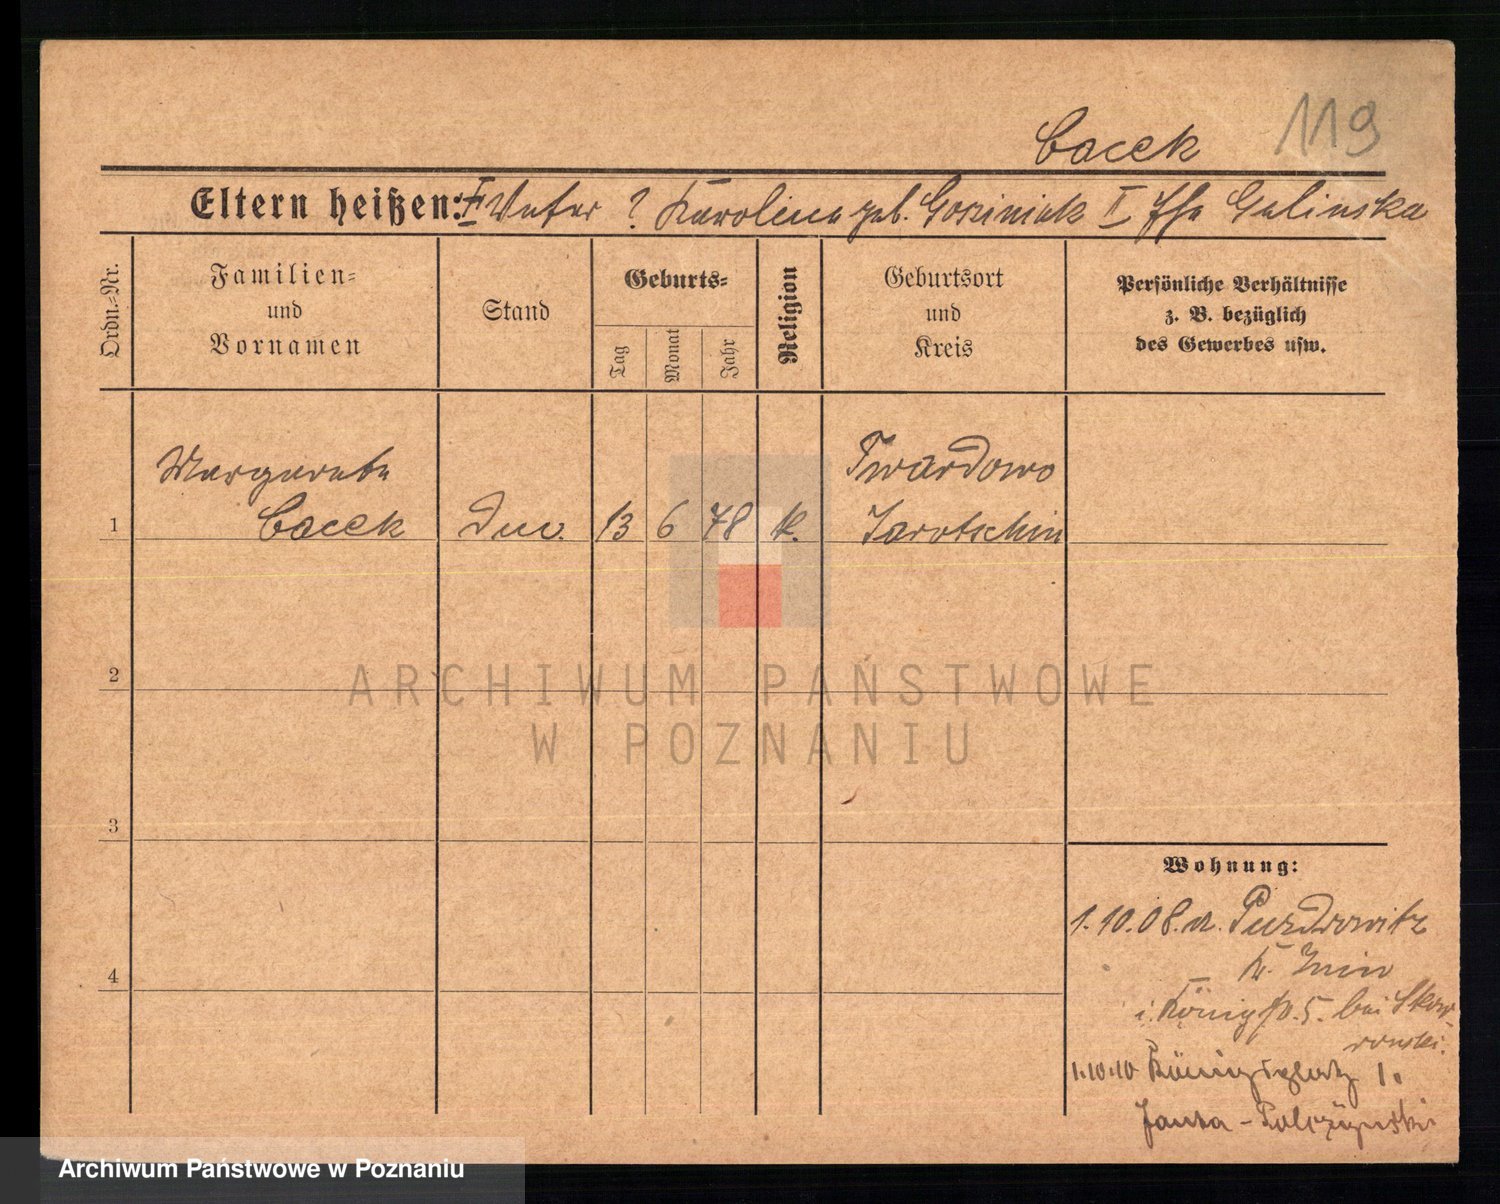 Cacek 119
Eltern heißen: I Vater ? Karolina geb. Gosciniak II Ehe Galinska
Ordn.-Nr.
Familien-
und
Vornamen
Stand
Geburts-
Tag
Monat
Jahr
Religion
Geburtsort
und
Kreis
Persönliche Verhältnisse
z. B. bezüglich
des Gewerbes usw.
Margarete Twardowo
1 Cacek 13 6 78 k. Jarotschin
2
ARCHIWUM PAŃSTWOWE
W POZNANIU
3
Wohnung:
1.10.08. a.
4 Kr. Znin
i. Königstr. 5. bei Skow-
ronski.
1.10.10 Königsplatz 1.
Janta-Polczynski
Archiwum Państwowe w Poznaniu